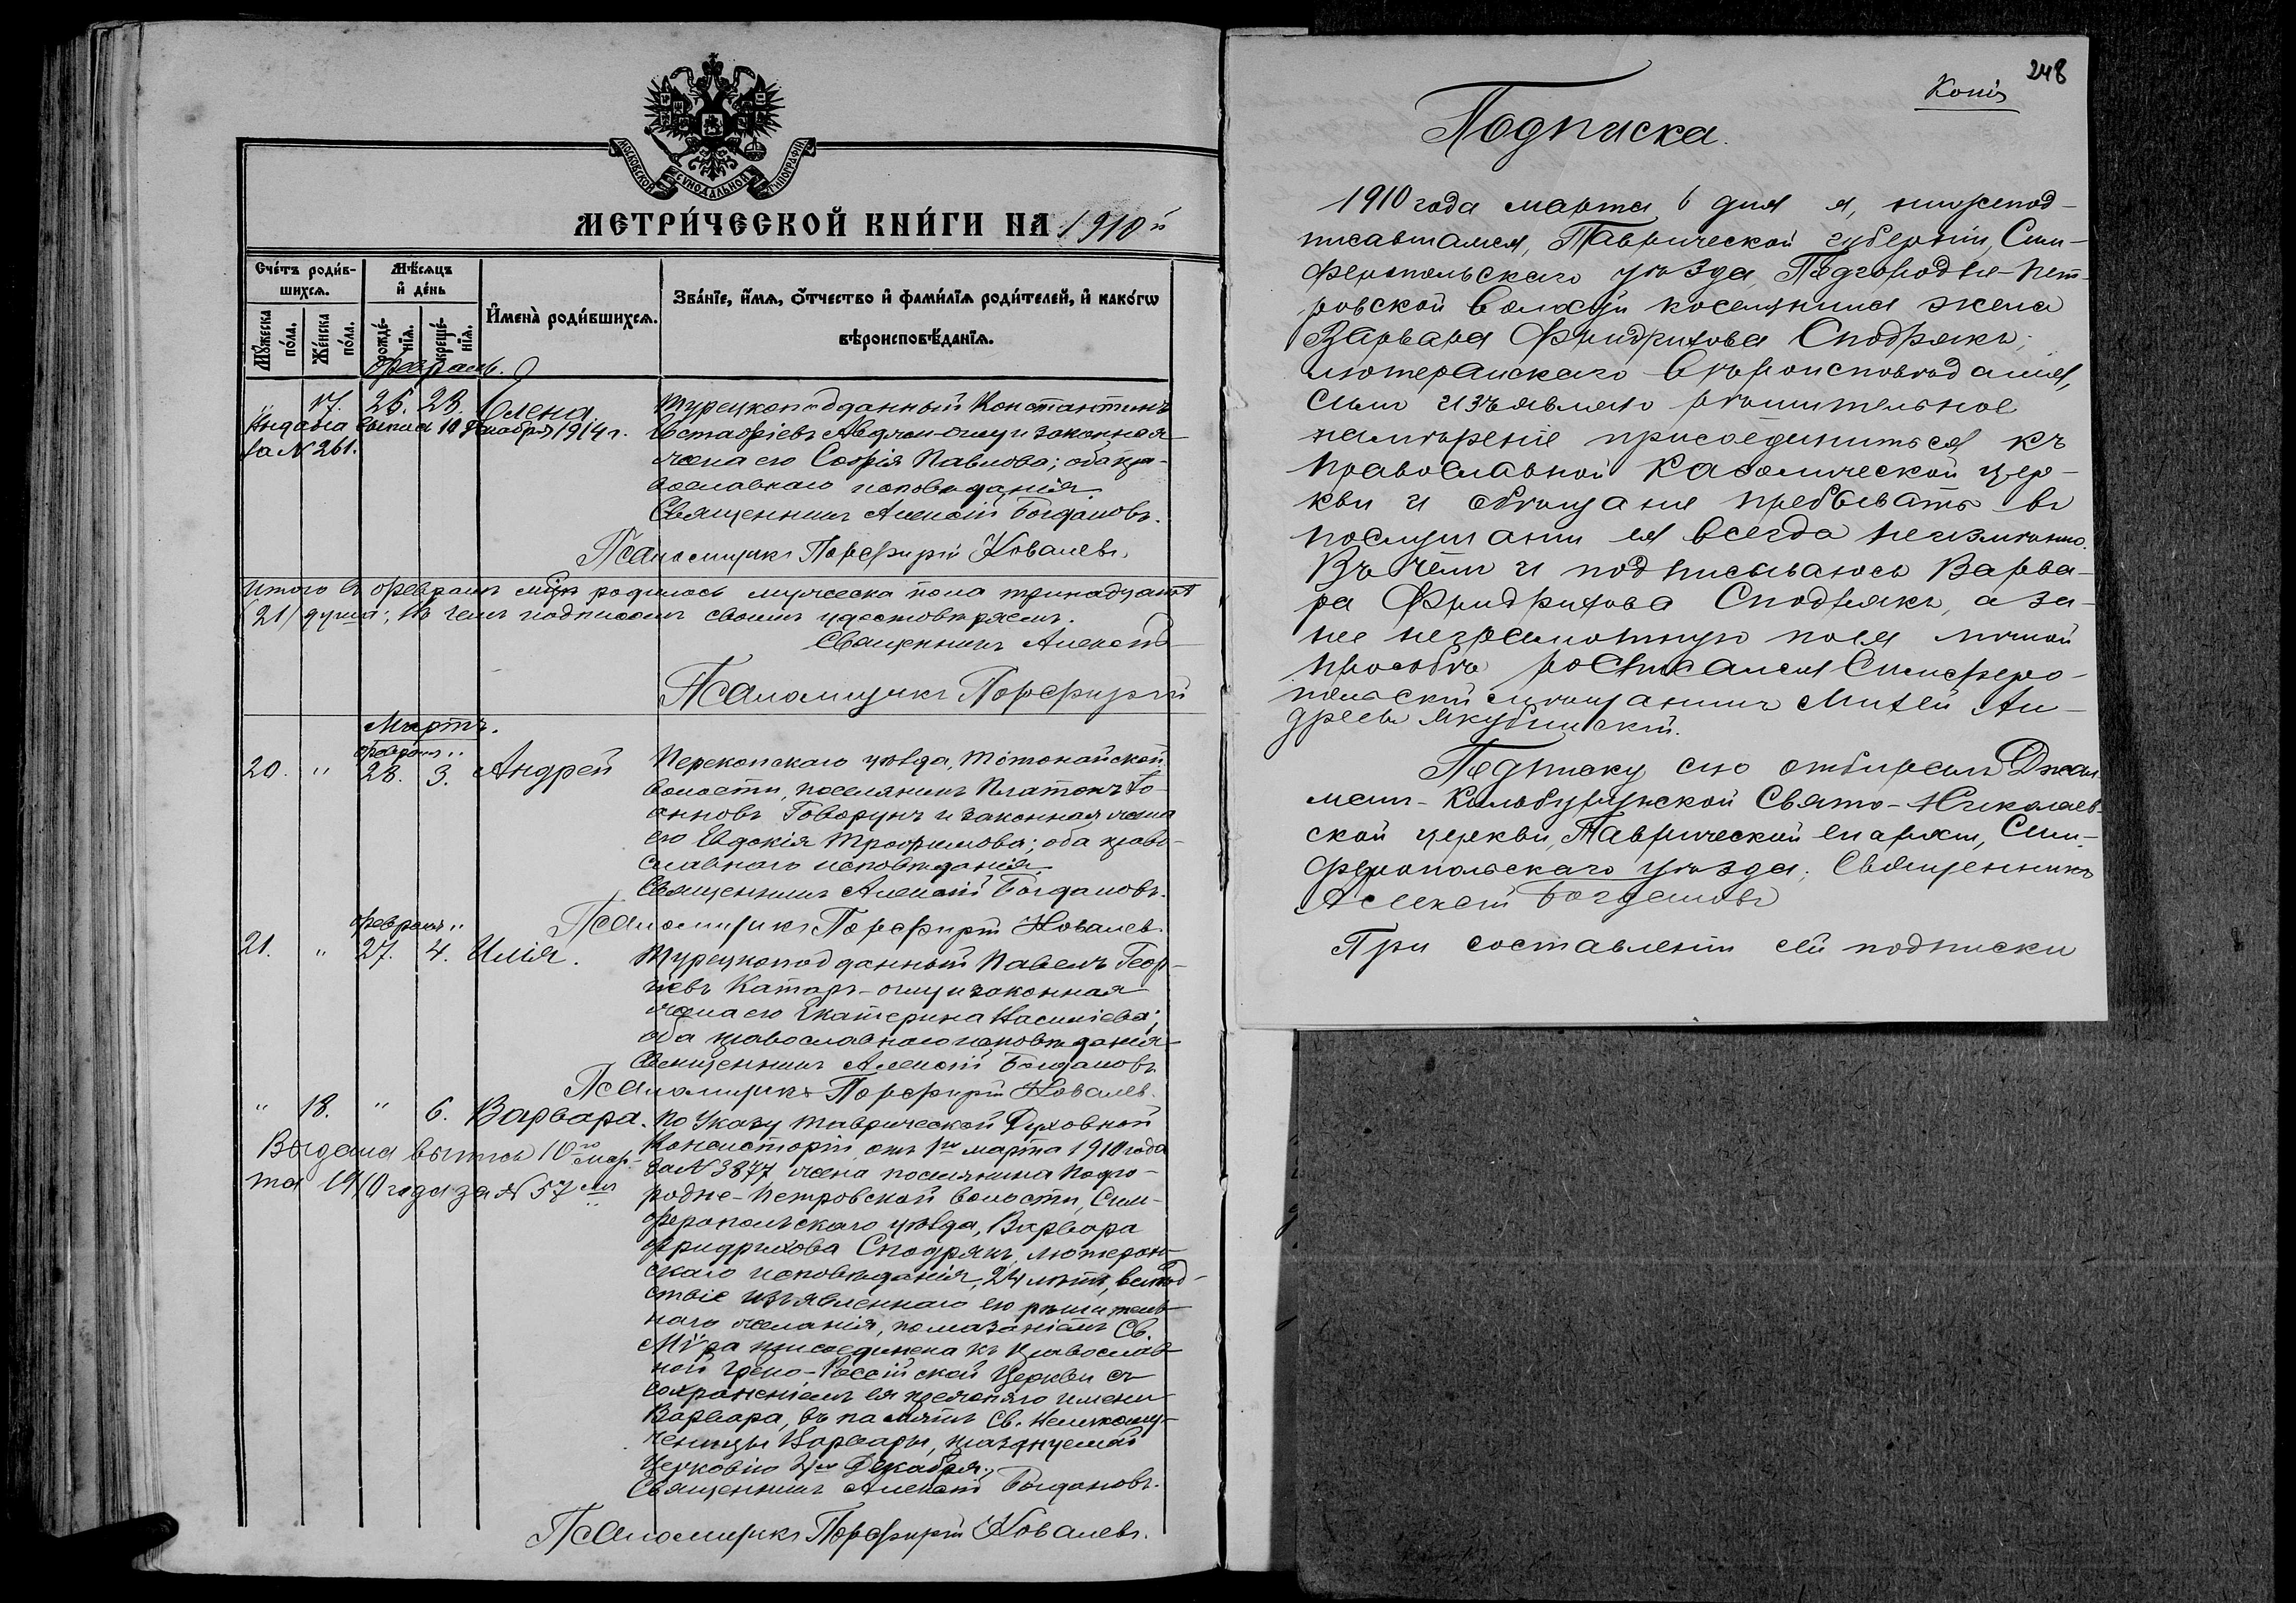 МОСКОВСКОЙ СѴНОДАЛЬНОЙ ТИПОГРАФІИ
МЕТРИ́ЧЕСКОЙ КНИ́ГИ НА 1910 й
Сче́тъ роди́в-
шихся.
Мѣ́сяцъ
и҆ де́нь
И҆мена̀ роди́вшихся.
Зва́нїе, и҆́мя, ѻ҆́тчество и҆ фами́лїя роди́телей, и҆ како́гѡ
вѣроисповѣ́данїя.
Му́жеска
по́ла.
Же́нска
по́ла.
рожде́-
нїя.
креще́-
нїя.
Февраль.
" 17. 26. 28. Елена.
Выдана выпись 10 декабря 1914 г.
за N 261.
Турецкоподданный Константинъ
Евстафіевъ и законная
жена его Софія Павлова; оба пра-
вославнаго исповѣданія.
Священникъ Алексій Богдановъ.
Псаломщикъ Порфирій Ковалевъ.
Итого въ февралѣ мцѣ родилось мужеска пола тринадцать
(21) душъ; въ чемъ подписомъ своимъ удостовѣряемъ.
Священникъ Алексій
Псаломщикъ Порфирій
Мартъ.
20. " февраля 28. 3. Андрей
Перекопскаго уѣзда,
волости, поселянинъ Платонъ Іо-
анновъ Говорунъ и законная жена
его Евдокія Трофимова; оба право-
славнаго исповѣданія.
Священникъ Алексій Богдановъ.
Псаломщикъ Порфирій Ковалевъ.
21. " февраля 27. 4. Илія.
Турецкоподданный Павелъ Геор-
гіевъ и законная
жена его Екатерина Василіева;
оба православнаго исповѣданія
Священникъ Алексій Богдановъ
Псаломщикъ Порфирій Ковалевъ.
" 18. " 6. Варвара.
Выдана выпись 10го мар-
та 1910 года за N 57
По Указу Таврической Духовной
Консисторіи отъ 1го марта 1910 года
за N 3877, жена поселянина Подго-
родне-Петровской волости, Сим-
феропольскаго уѣзда, Варвара
Фридрихова Сподрякъ, лютеран-
скаго исповѣданія, 24 лѣтъ, вслѣд-
ствіе изъявленнаго ею рѣшитель-
наго желанія, помазаніемъ Св.
Мѵра присоединена къ православ-
ной Греко-Россійской Церкви съ
сохраненіемъ ея прежняго имени
Варвара, въ память Св. Великому-
ченицы Варвары, празднуемой
Церковію 4го Декабря.
Священникъ Алексій Богдановъ.
Псаломщикъ Порфирій Ковалевъ.
248
Копія
Подписка.
1910 года марта 6 дня я, нижепод-
писавшаяся, Таврической губерніи, Сим-
феропольскаго уѣзда, Подгородне-Пет-
ровской волости поселянина жена
Варвара Фридрихова Сподрякъ,
лютеранскаго вѣроисповѣданія,
симъ изъявляю рѣшительное
намѣреніе присоединиться къ
православной Каѳолической цер-
кви и обѣщаніе пребывать въ
послушаніи ея всегда неизмѣнно.
Въ чемъ и подписываюсь Варва-
ра Фридрихова Сподрякъ, а за
нее неграмотную по ея личной
просьбѣ росписался Симферо-
польскій мѣщанинъ Михей Ан-
дреевъ Якубинскій.
Подписку сію отбиралъ Джал-
манъ-Кильбурунской Свято-Николаев-
ской церкви, Таврической епархіи, Сим-
феропольскаго уѣзда; Священникъ
Алексій Богдановъ
При составленіи сей подписки